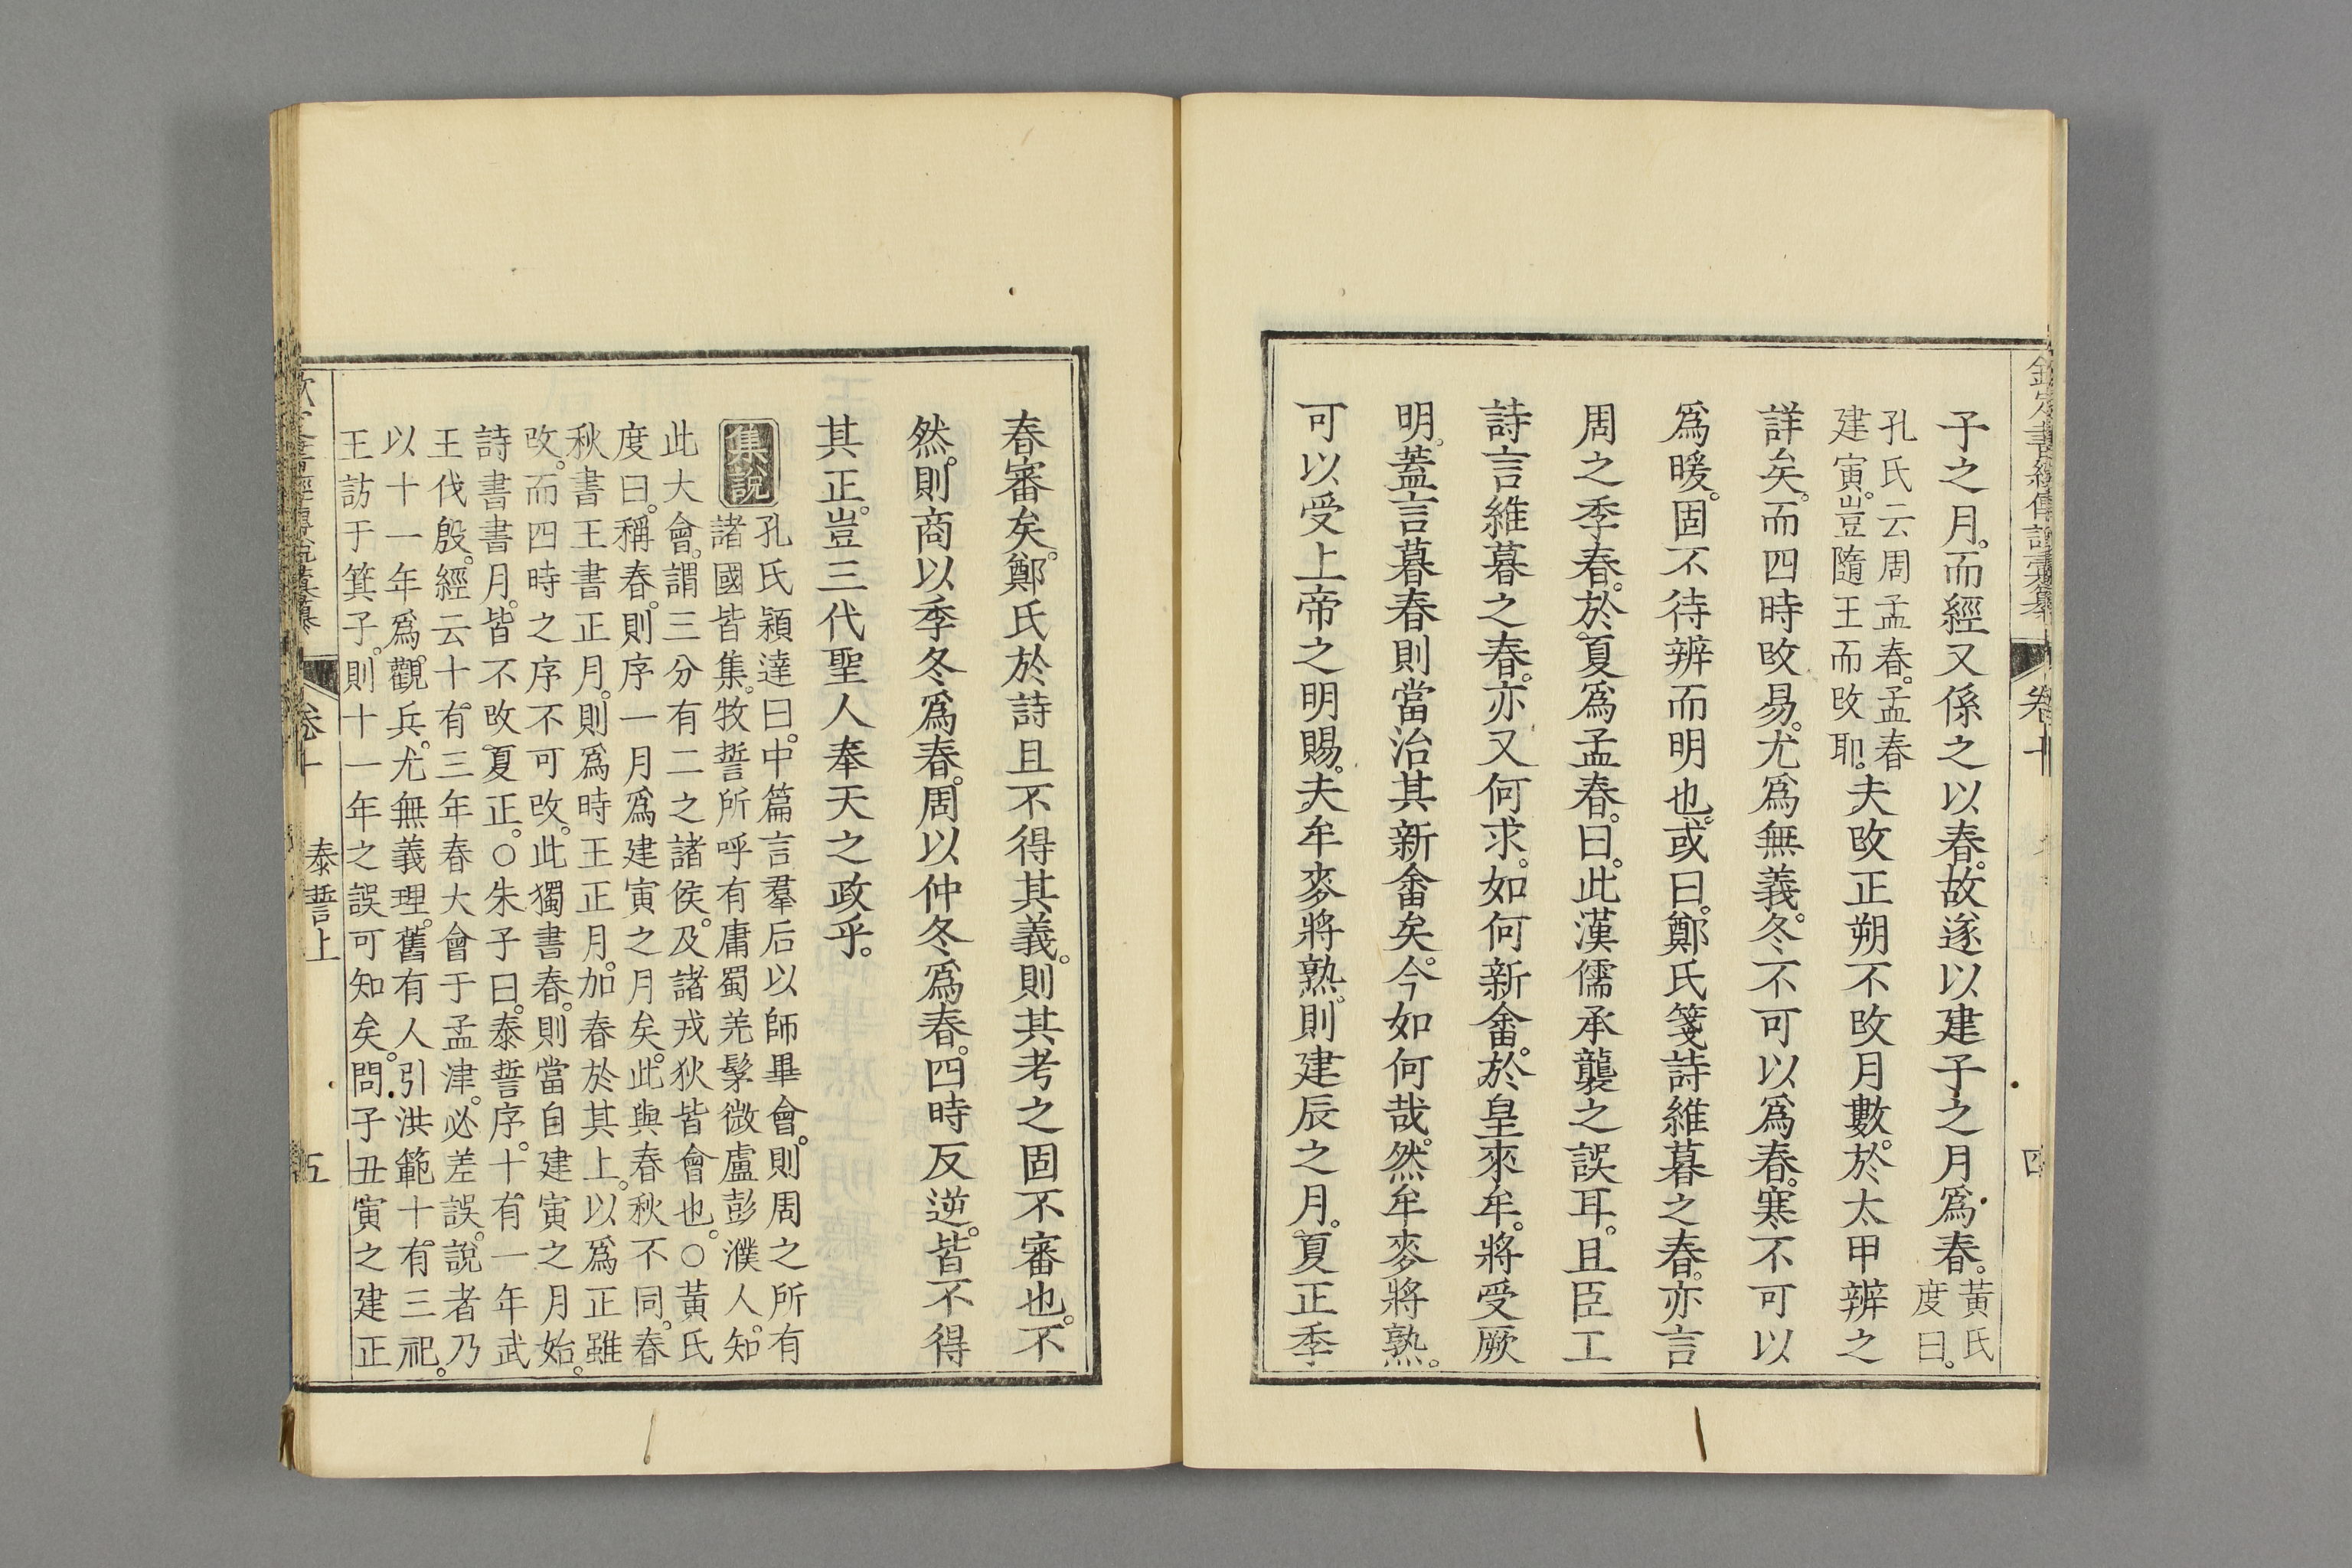 欽定書經傳說彙纂 卷十 四
子之月。而經又係之以春。故遂以建子之月爲春。黃氏度曰。
孔氏云周孟春。孟春建寅。豈隨王而改耶。夫改正朔不改月數。於太甲辨之
詳矣。而四時改易。尤爲無義。冬不可以爲春。寒不可以
爲暖。固不待辨而明也。或曰。鄭氏箋詩維暮之春。亦言
周之季春。於夏爲孟春。曰。此漢儒承襲之誤耳。且臣工
詩言維暮之春。亦又何求。如何新畬。於皇來牟。將受厥
明。蓋言暮春則當治其新畬矣。今如何哉。然牟麥將熟。
可以受上帝之明賜。夫牟麥將熟。則建辰之月。夏正季
春審矣。鄭氏於詩且不得其義。則其考之固不審也。不
然。則商以季冬爲春。周以仲冬爲春。四時反逆。皆不得
其正。豈三代聖人奉天之政乎。
集說 孔氏穎達曰。中篇言羣后以師畢會。則周之所有
諸國皆集。牧誓所呼有庸蜀羌髳微盧彭濮人。知
此大會。謂三分有二之諸侯。及諸戎狄皆會也。○黃氏
度曰。稱春。則序一月爲建寅之月矣。此與春秋不同。春
秋書王書正月。則爲時王正月。加春於其上。以爲正雖
改。而四時之序不可改。此獨書春。則當自建寅之月始。
詩書書月。皆不改夏正。○朱子曰。泰誓序。十有一年武
王伐殷。經云十有三年春大會于孟津。必差誤。說者乃
以十一年爲觀兵。尤無義理。舊有人引洪範十有三祀。
王訪于箕子。則十一年之誤可知矣。問。子丑寅之建正
欽定書經傳說彙纂 卷十 泰誓上 五